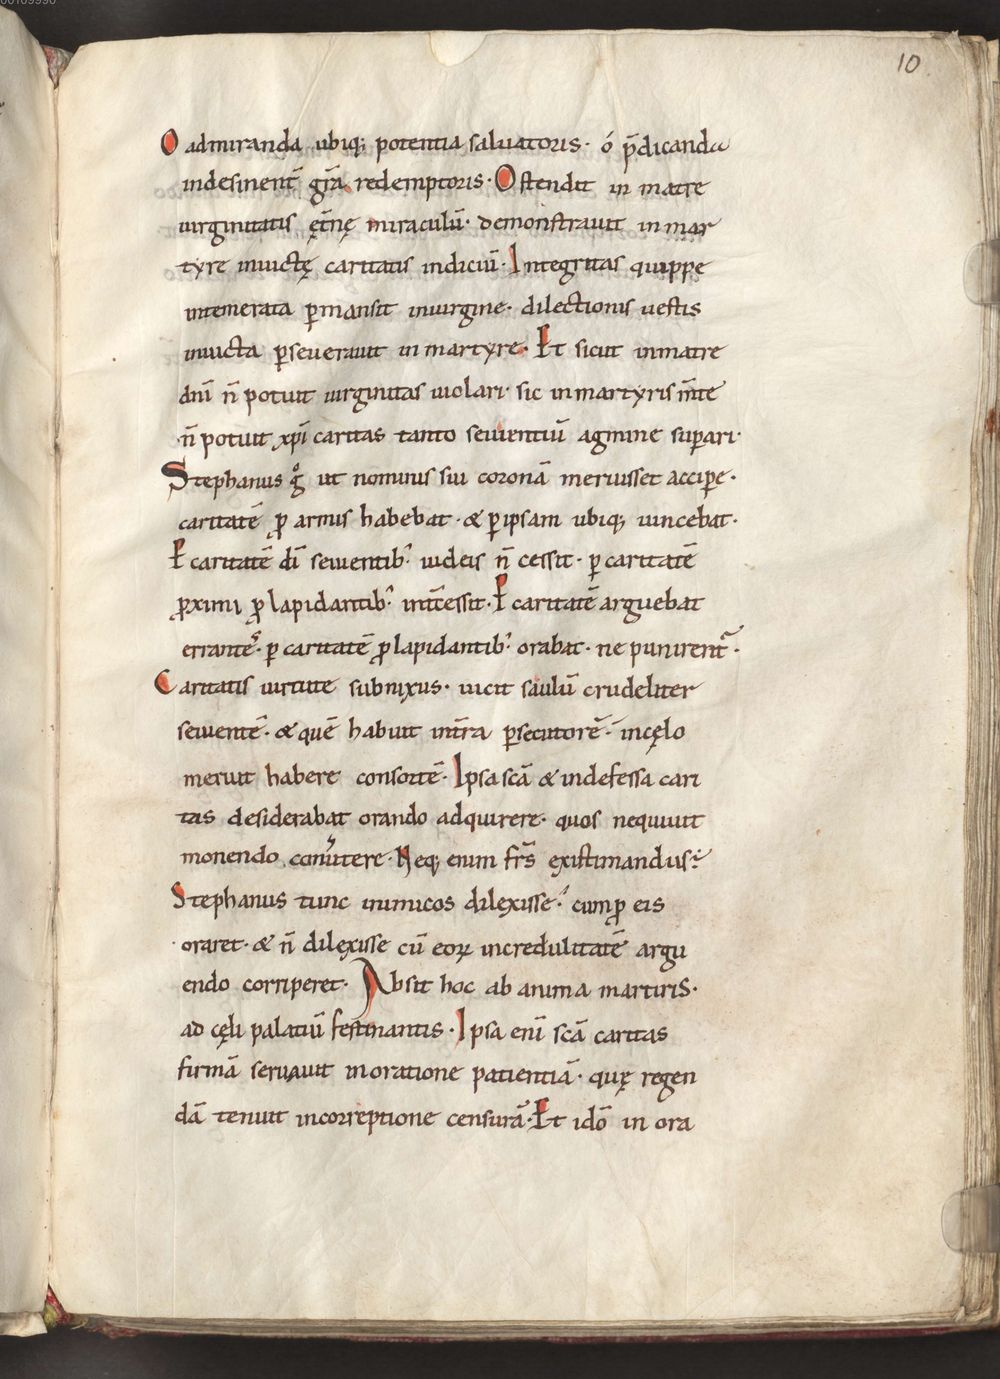 00109990
10
O admiranda ubiq; potentia saluatoris· ó p̄dicanda
indesinent̄ gr̄a redemptoris· Ostendit in matre
uirginitatis ęt̄nę miraculū· demonstrauit in mar
tyre inuictę caritatis indiciū· Integritas quippe
intemerata ꝑmansit inuirgine· dilectionis uestis
inuicta ꝑseuerauit in martyre· Et sicut inmatre
dn̄i n̄ potuit uirginitas uiolari· sic inmartyris m̄te
n̄ potuit xp̄i caritas tanto seuientiū agmine suꝑari·
Stephanus gͦ ut nominis sui coronā meruisset acciꝑe·
caritatē ꝓ armis habebat· & ꝑ ipsam ubiq; uincebat·
Ꝑ caritatē dī seuientib; iudeis n̄ cessit· ꝑ caritatē
ꝓximi ꝓ lapidantib; int̄cessit· Ꝑ caritatē arguebat
errante᷒· ꝑ caritatē ꝓ lapidantib; orabat· ne punirent᷑·
Caritatis uirtute subnixus· uicit saulū crudeliter
seuientē· & quē habuit int̄ra ꝑsecutorē· incęlo
meruit habere consortē· Ipsa scā & indefessa cari
tas desiderabat orando adquirere· quos nequiuit
monendo conu̾tere· Neq; enim fr̄s existimandus·
Stephanus tunc inimicos dilexisse· cum ꝓ eis
oraret· & n̄ dilęxisse cū eoꝝ incredulitatē argu
endo corriperet· Absit hoc ab anima martiris·
ad cęli palatiū festinantis· Ipsa enī scā caritas
firmā seruauit inoratione patientiā· quę regen
dā tenuit incorreptione censurā· Et idō in ora